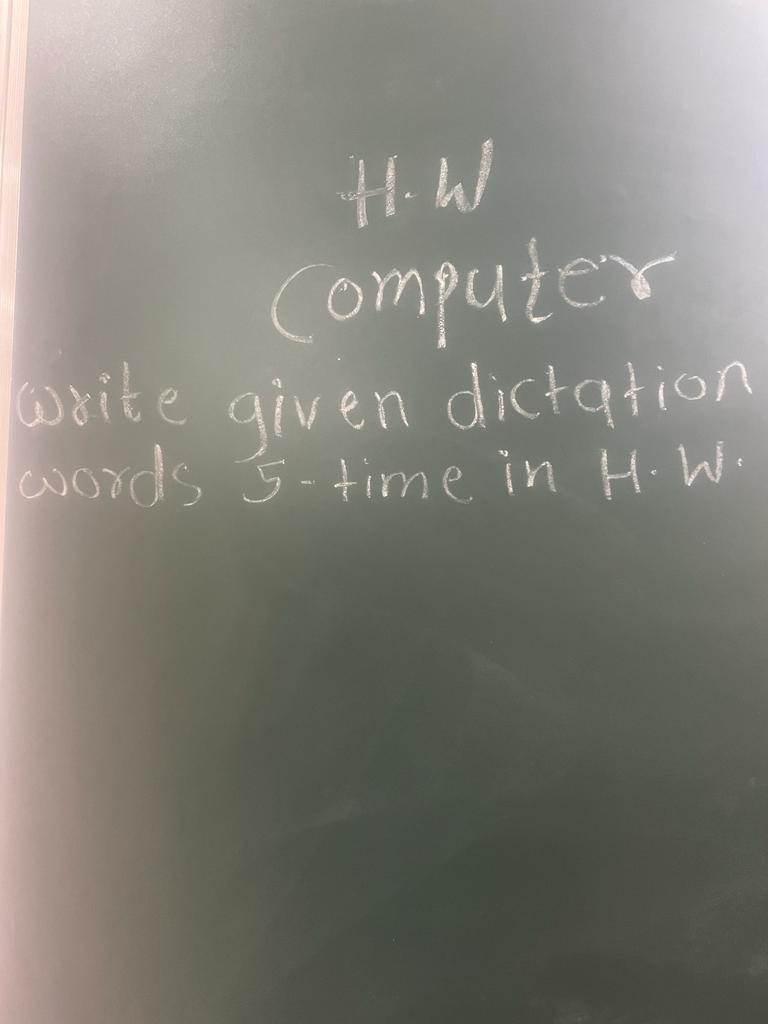 H.W
Computer
write given dictation
words 5-time in H.W.